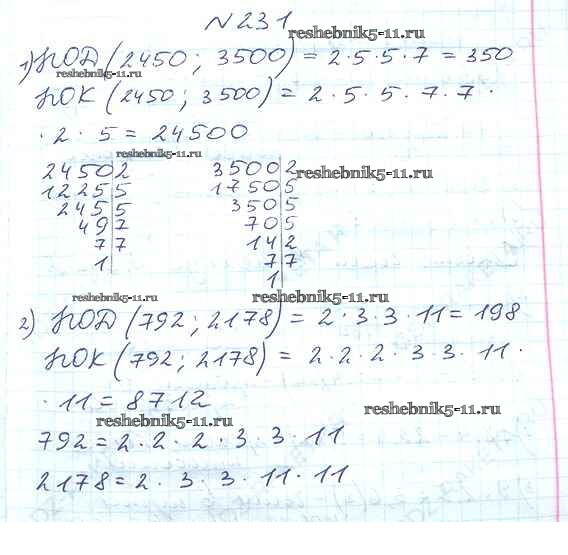 №231
reshebnik5-11.ru
1) НОД (2450; 3500) = 2·5·5·7 = 350
reshebnik5-11.ru
НОК (2450; 3500) = 2·5·5·7·7·
·2·5 = 24500
reshebnik5-11.ru
2450|2 3500|2
reshebnik5-11.ru
1225|5 1750|5
245|5 350|5
49|7 70|5
7|7 14|2
1| 7|7
1|
reshebnik5-11.ru
reshebnik5-11.ru
2) НОД (792; 2178) = 2·3·3·11 = 198
НОК (792; 2178) = 2·2·2·3·3·11·
·11 = 8712
reshebnik5-11.ru
reshebnik5-11.ru
792 = 2·2·2·3·3·11
2178 = 2·3·3·11·11